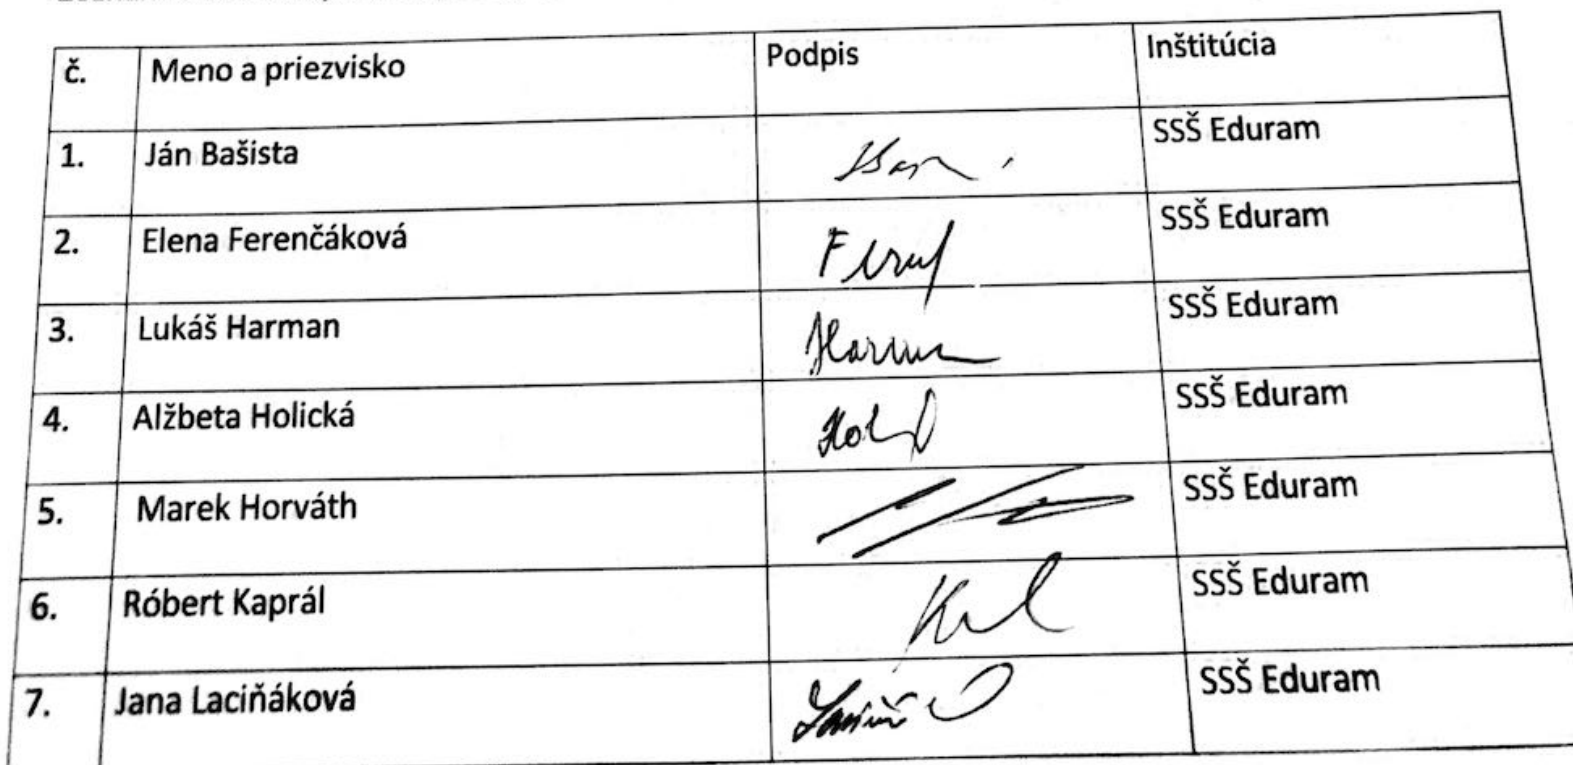 č. Meno a priezvisko Podpis Inštitúcia
1. Ján Bašista SSŠ Eduram
2. Elena Ferenčáková SSŠ Eduram
3. Lukáš Harman SSŠ Eduram
4. Alžbeta Holická SSŠ Eduram
5. Marek Horváth SSŠ Eduram
6. Róbert Kaprál SSŠ Eduram
7. Jana Laciňáková SSŠ Eduram